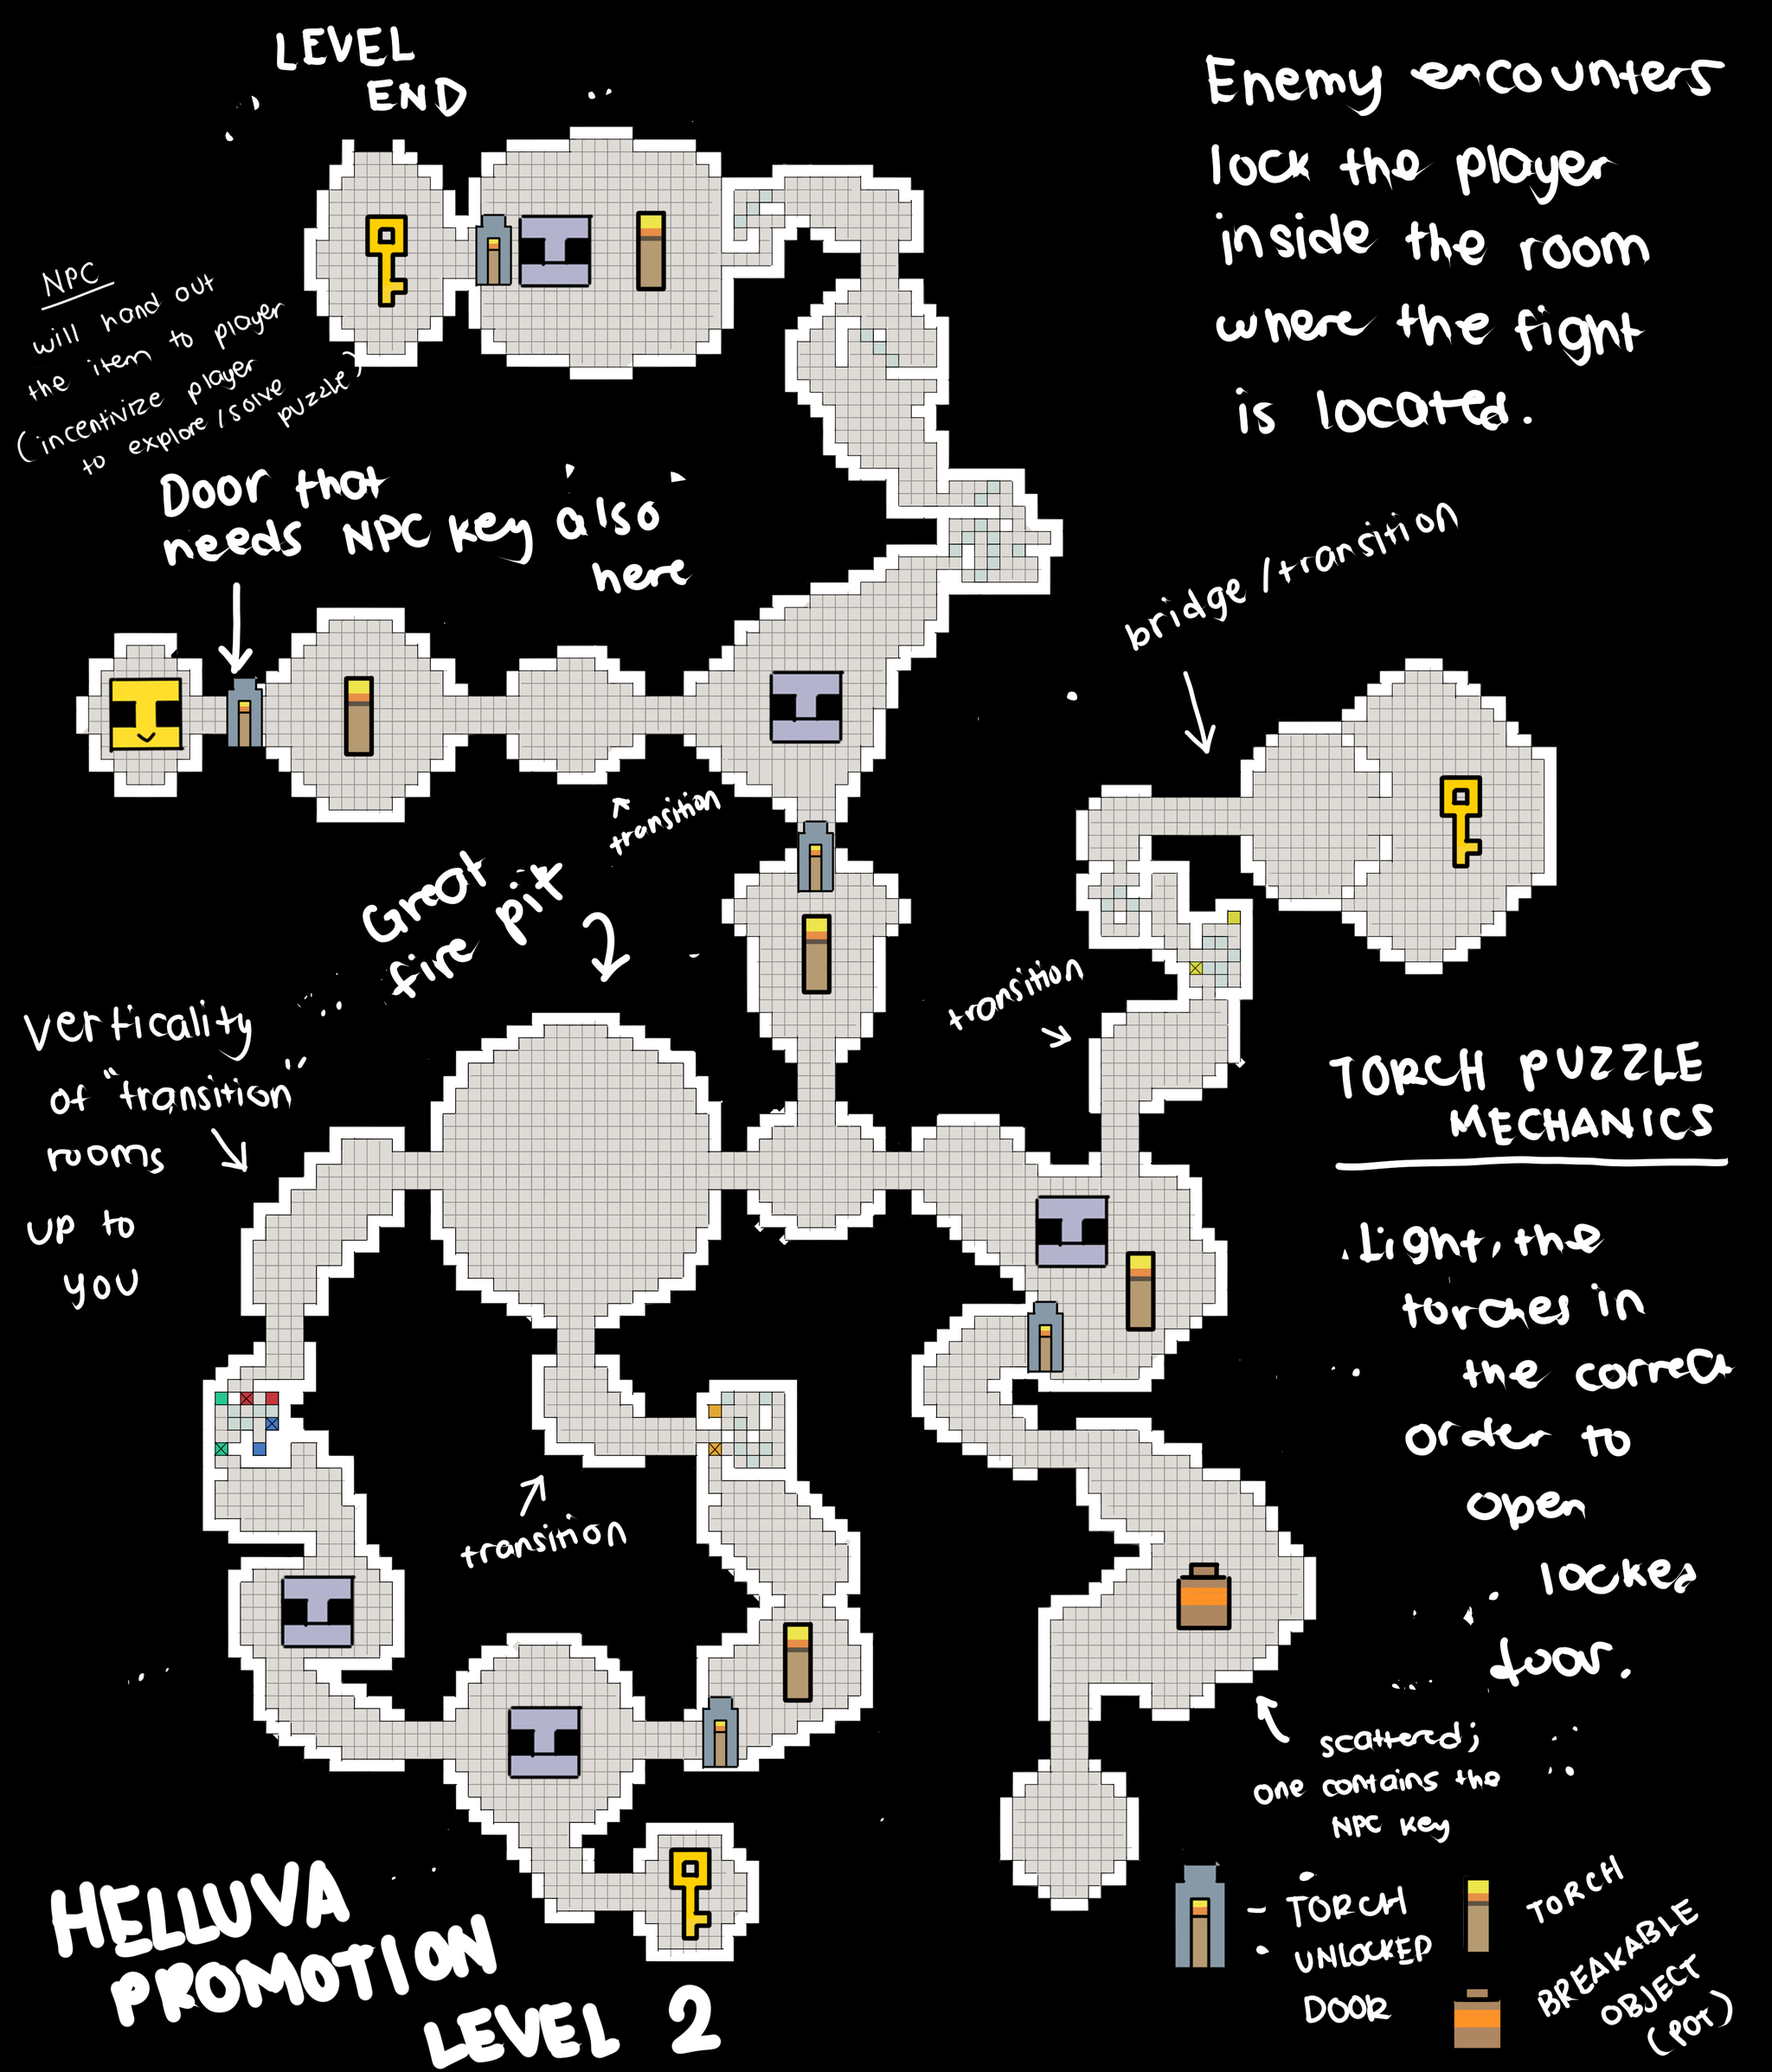 LEVEL
END
Enemy encounters
lock the player
inside the room
where the fight
is located.
NPC
will hand out
the item to player
(incentivize player
to explore / solve
puzzle)
Door that
needs NPC key also
here
bridge / transition
transition
Great
fire pit
transition
Verticality
of "transition"
rooms
up to
you
TORCH PUZZLE
MECHANICS
Light the
torches in
the correct
order to
open
locked
door.
transition
scattered;
one contains the
NPC key
HELLUVA
PROMOTION
LEVEL 2
- TORCH
UNLOCKED
DOOR
TORCH
BREAKABLE
OBJECT
(POT)